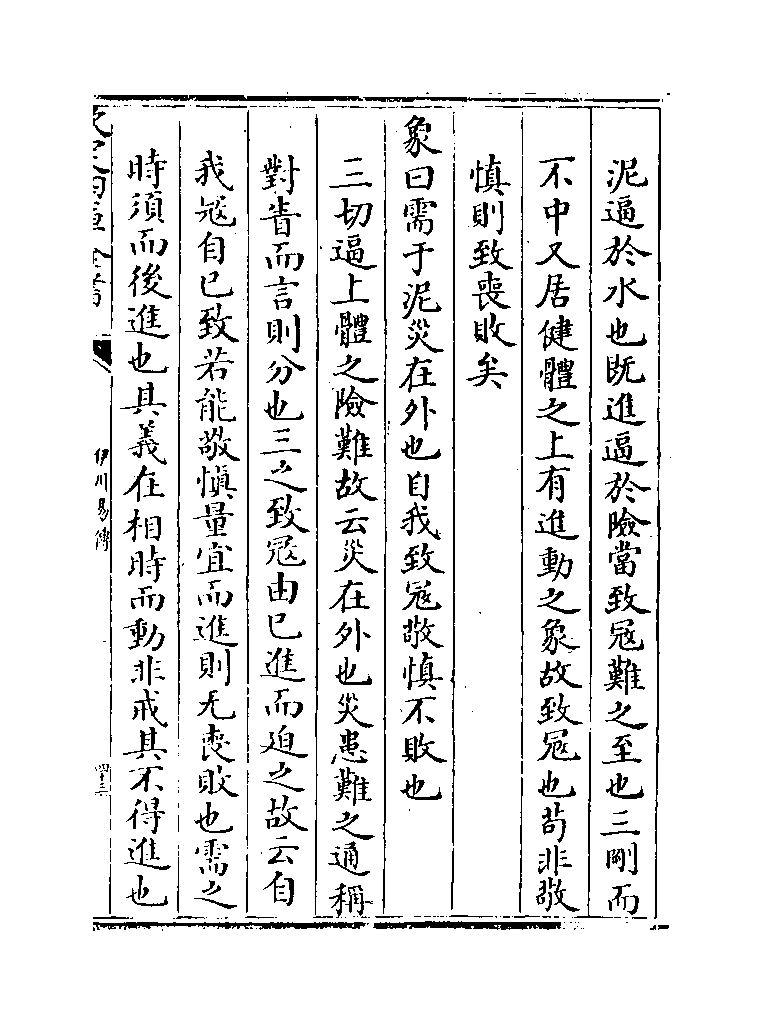 泥逼於水也既進逼於險當致冦難之至也三剛而
不中又居健體之上有進動之象故致冦也苟非敬
慎則致喪敗矣
象曰需于泥災在外也自我致冦敬慎不敗也
三切逼上體之險難故云災在外也災患難之通稱
對眚而言則分也三之致冦由已進而迫之故云自
我冦自已致若能敬慎量宜而進則无喪敗也需之
時須而後進也其義在相時而動非戒其不得進也
伊川易傳
四十三